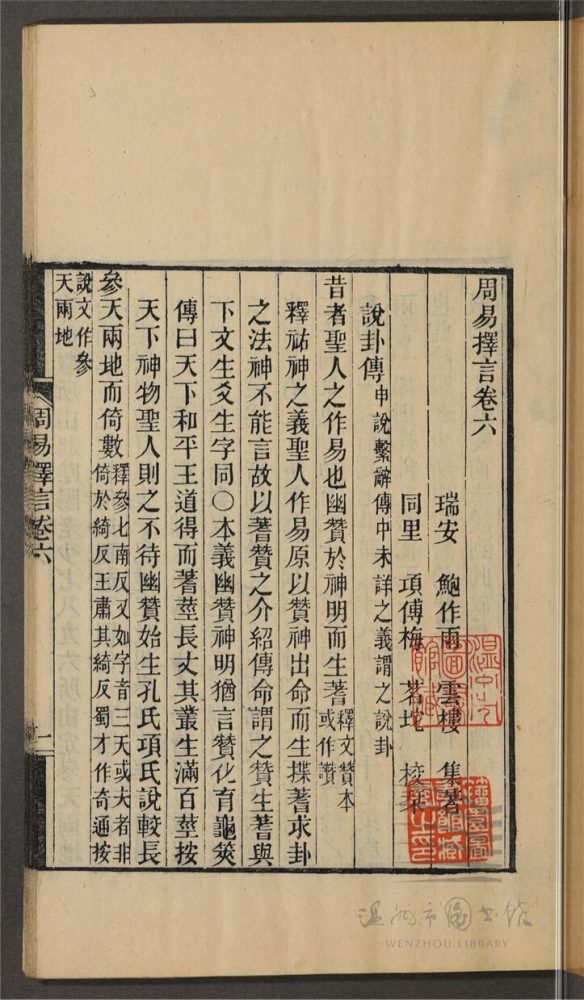 周易擇言卷六
瑞安　鮑作雨　雲樓　集著
同里　項傅梅　茗垞　校
說卦傳申說繫辭傳中未詳之義謂之說卦
昔者聖人之作易也幽贊於神明而生蓍釋文贊本或作讚
釋祐神之義聖人作易原以贊神出命而生揲蓍求卦
之法神不能言故以蓍贊之介紹傳命謂之贊生蓍與
下文生爻生字同○本義幽贊神明猶言贊化育龜筴
傳曰天下和平王道得而蓍莖長丈其叢生滿百莖按
天下神物聖人則之不待幽贊始生孔氏項氏說較長
參天兩地而倚數釋參七南反又如字音三天或夫者非倚於綺反王肅其綺反蜀才作奇通按
說文作參
天兩地
周易擇言卷六
一
溫州市圖書館
WENZHOU LIBRARY